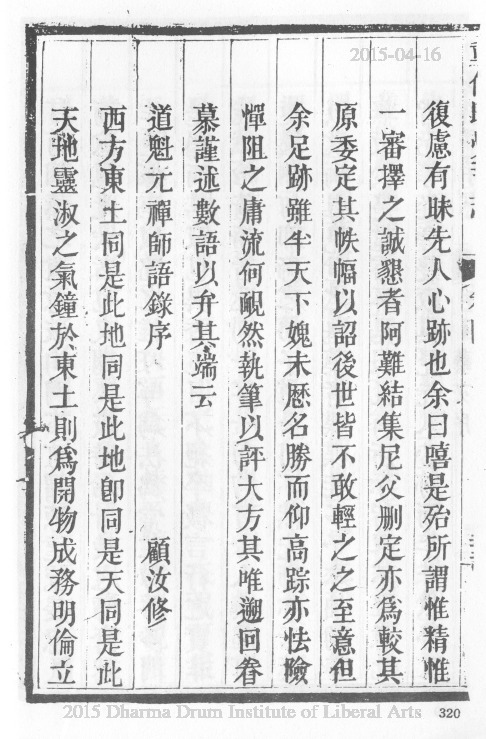 2015-04-16
復慮有昧先人心跡也余曰嘻是殆所謂惟精惟
一審擇之誠懇者阿難結集尼父刪定亦爲較其
原委定其帙幅以詔後世皆不敢輕之之至意但
余足跡雖半天下媿未歷名勝而仰高踪亦怯險
憚阻之庸流何覥然執筆以評大方其唯遡回眷
慕謹述數語以弁其端云
道魁元禪師語錄序
顧汝修
西方東土同是此地同是此地卽同是天同是此
天地靈淑之氣鐘於東土則爲開物成務明倫立
2015 Dharma Drum Institute of Liberal Arts
320